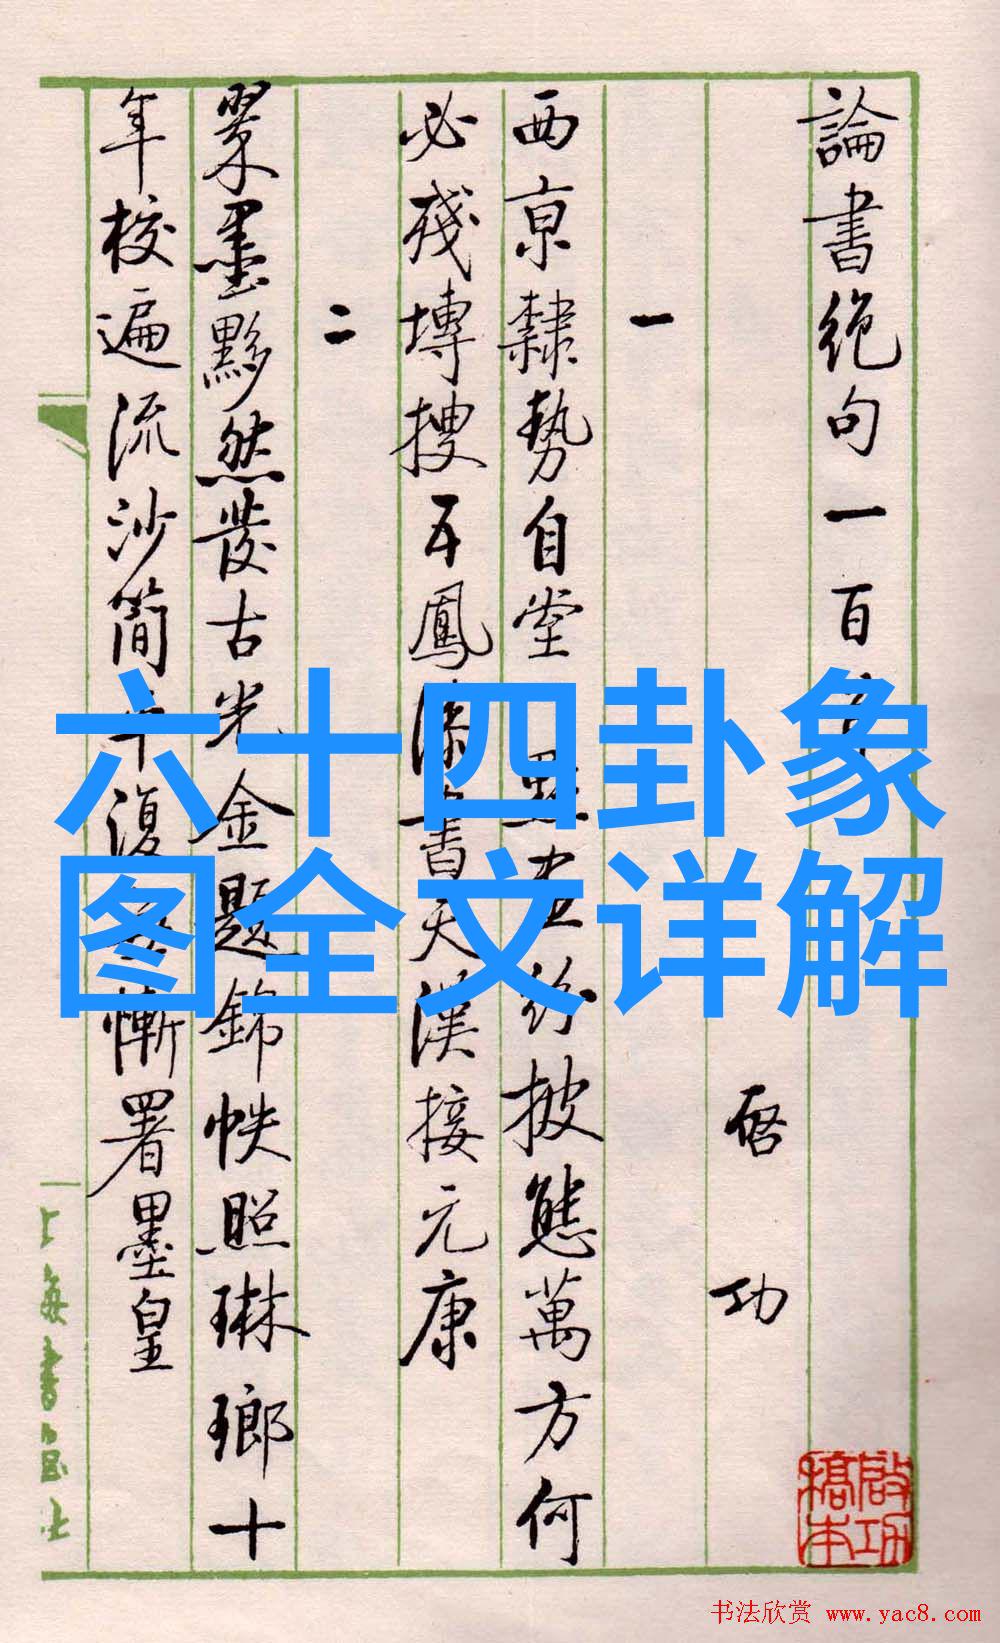 論書絕句一百
启功
一
西京隸勢自堂點畫紛披態萬方何
必殘塼搜五鳳漆書天漢接元康
二
翠墨黟然發古光金題錦帙照琳瑯十
年校遍流沙簡平復慚署墨皇
六十四卦象
图全文详解
啟功
槁本
书法欣赏 www.yac8.com